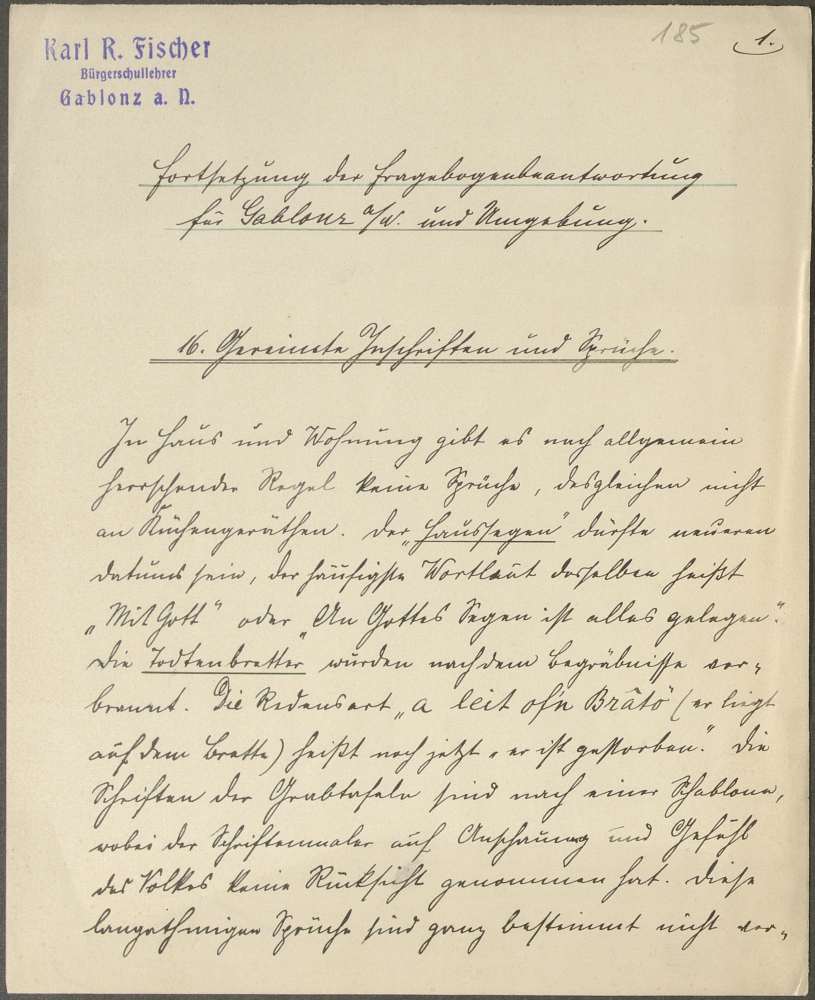 Karl R. Fischer
Bürgerschullehrer
Gablonz a. N.
185
1.
Fortsetzung der Fragebogenbeantwortung
für Gablonz a/N. und Umgebung.
16. Gereimte Inschriften und Sprüche.
In Haus und Wohnung gibt es nach allgemein
herrschender Regel keine Sprüche, desgleichen nicht
an Küchengeräthen. Der „Haussegen" dürfte neueren
Datums sein, der häufigste Wortlaut desselben heißt
„Mit Gott" oder „An Gottes Segen ist alles gelegen".
Die Todtenbretter wurden nach dem Begräbnisse ver-
brannt. Die Redensart „a leit ofn Brâtö" (er liegt
auf dem Brette) heißt noch jetzt „er ist gestorben." Die
Schriften der Grabtafeln sind nach einer Schablone,
wobei der Schriftenmaler auf Anschauung und Gefühl
des Volkes keine Rücksicht genommen hat. Diese
langathmigen Sprüche sind ganz bestimmt nicht ver-